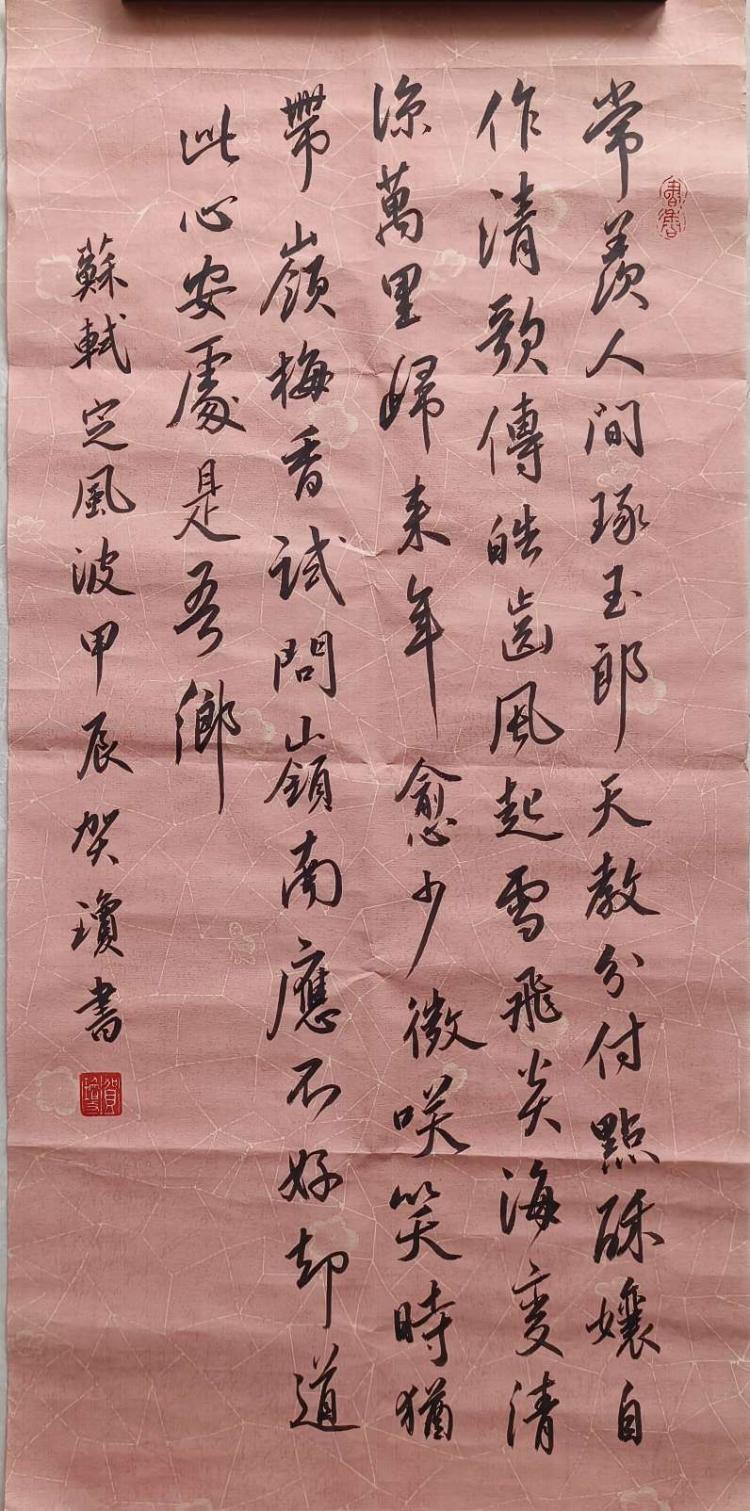 常羨人間琢玉郎天教分付點酥孃自
作清歌傳皓齒風起雪飛炎海變清
涼萬里歸来年愈少微咲笑時猶
帶嶺梅香試問嶺南應不好却道
此心安處是吾鄉
蘇軾定風波甲辰賀瓊書
賀瓊